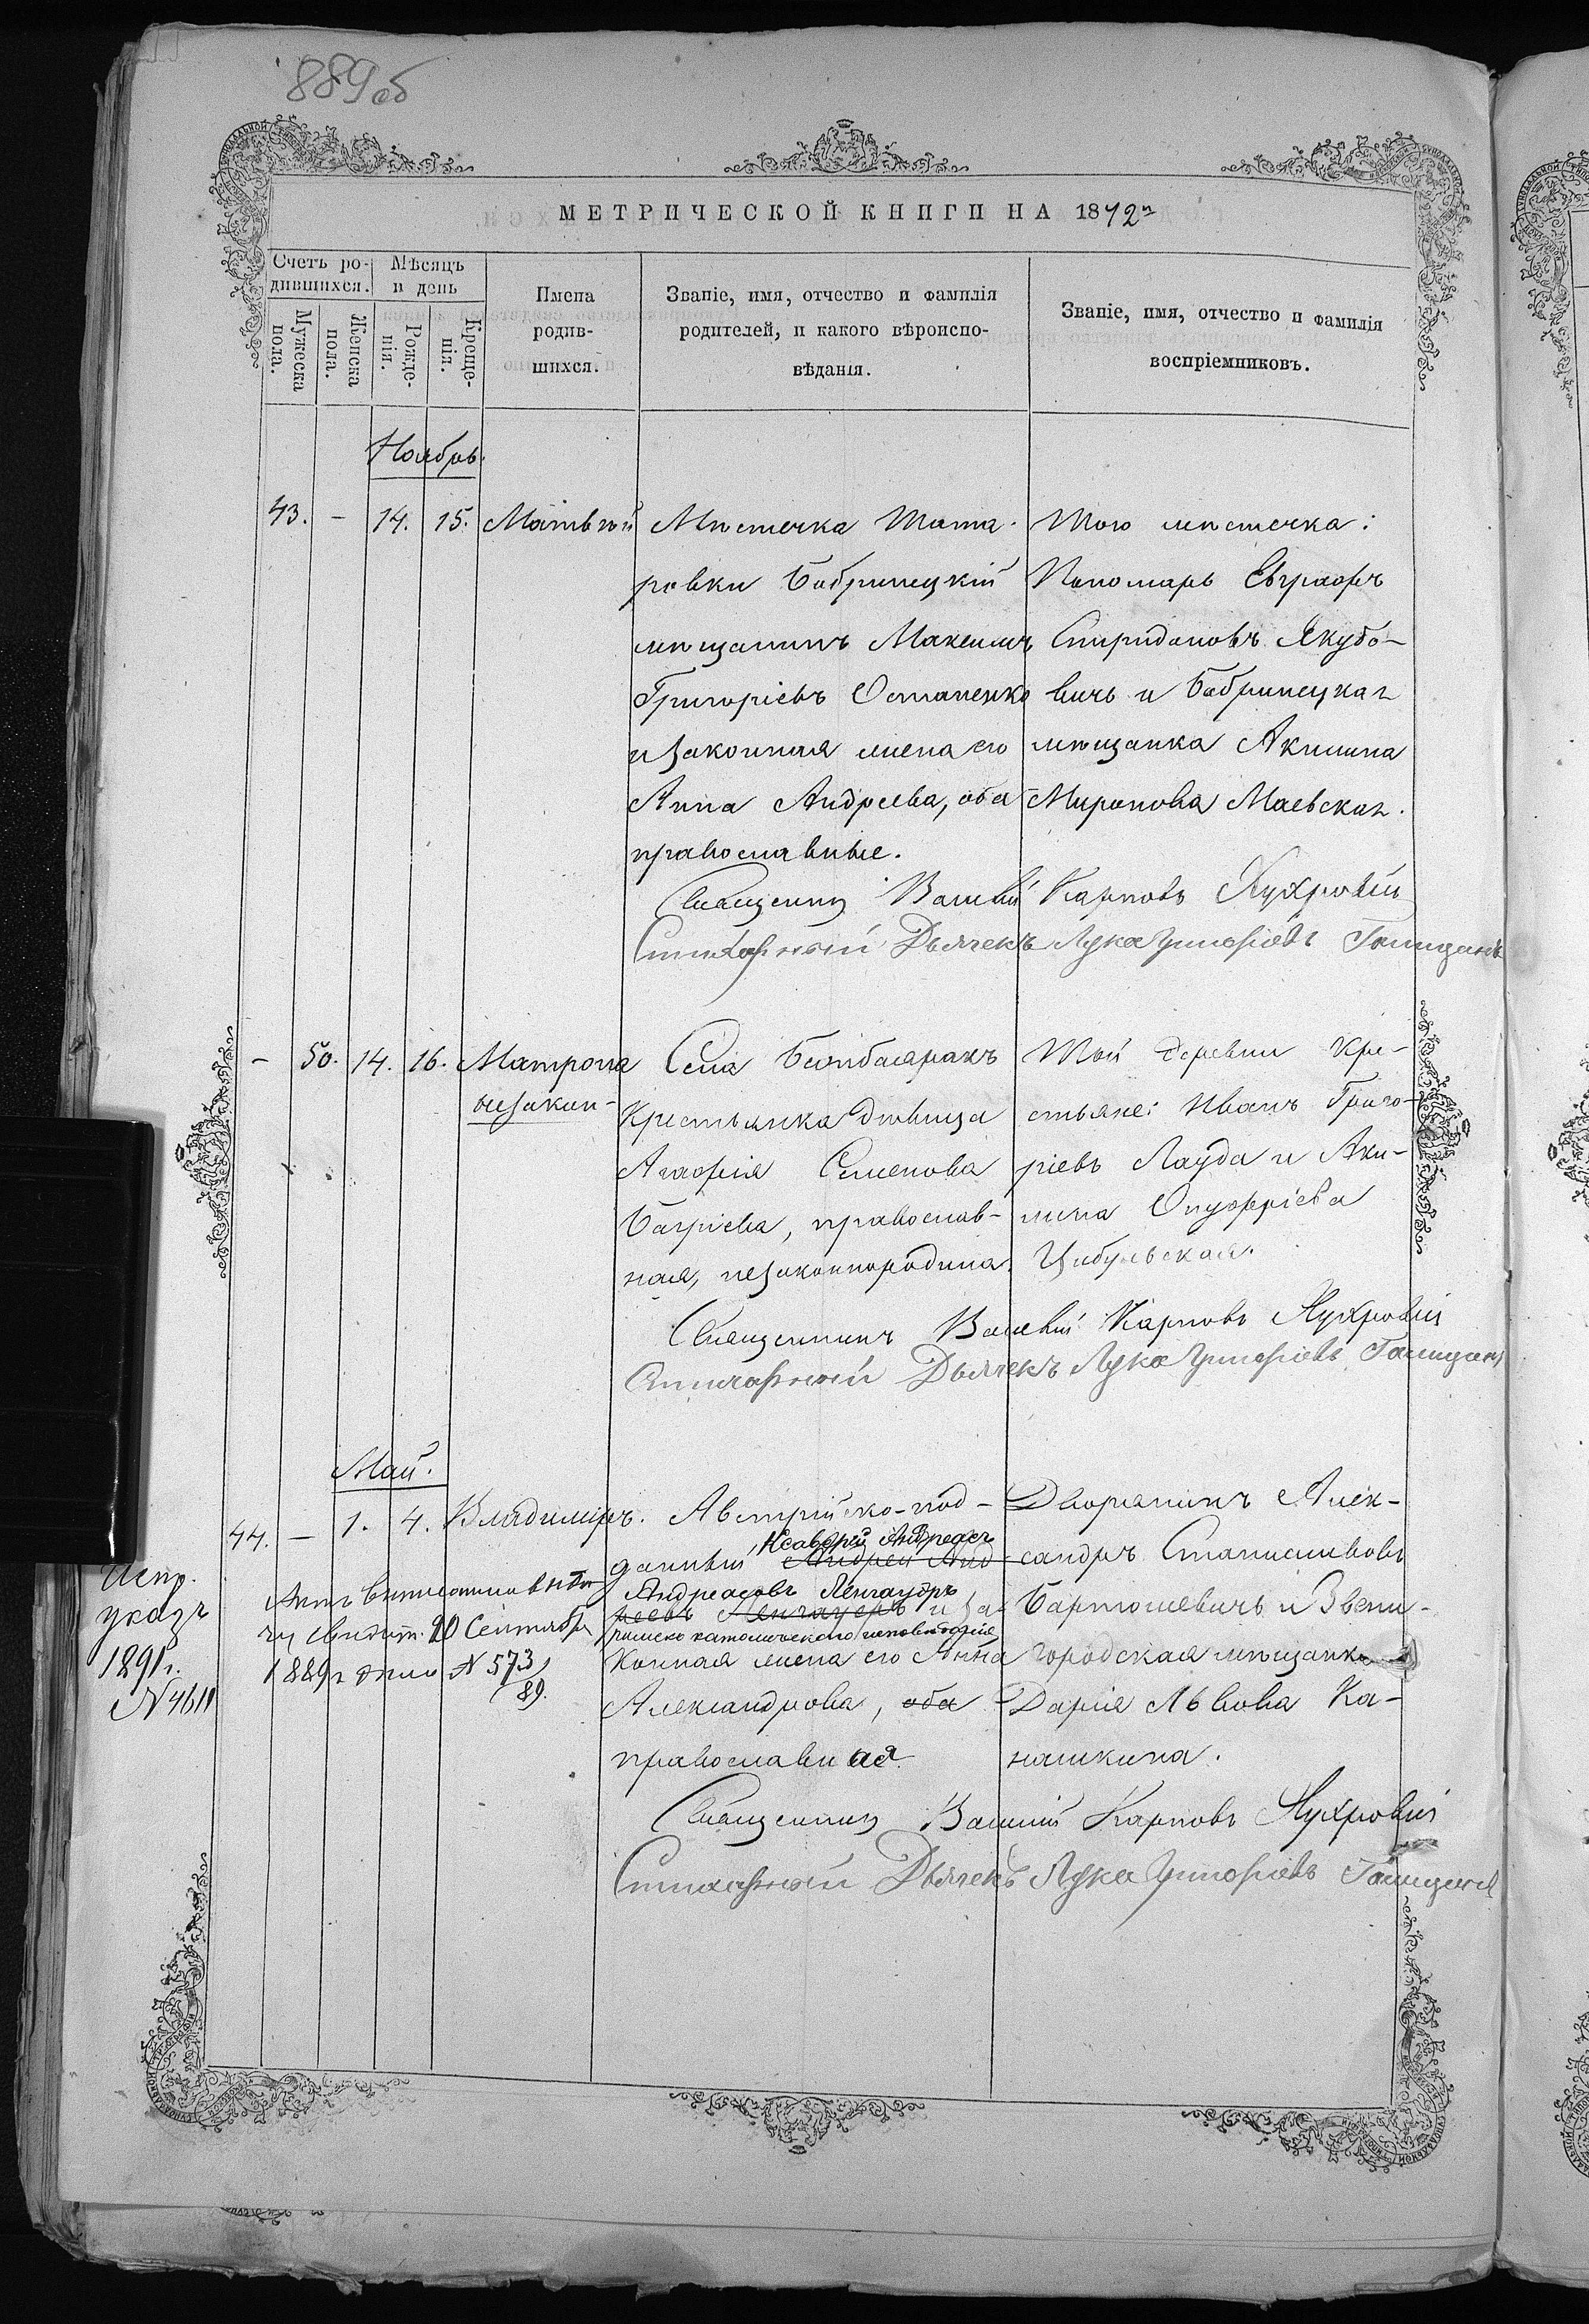 889об
МЕТРИЧЕСКОЙ КНИГИ НА 1872г
Счетъ ро-
дившихся.
Мѣсяцъ
и день
Мужеска
пола.
Женска
пола.
Рожде-
нія.
Креще-
нія.
Имена
родив-
шихся.
Званіе, имя, отчество и фамилія
родителей, и какого вѣроиспо-
вѣданія.
Званіе, имя, отчество и фамилія
воспріемниковъ.
Ноябрь.
43. - 14. 15. Матвѣй
Мѣстечка
ровки Бобринецкій
мѣщанинъ Максимъ
Григоріевъ Остапенко
и законная жена его
Анна Андреева, оба
православные.
Того мѣстечка:
Пономарь Евграфъ
Спиридоновъ Якубо-
вичъ и Бобринецкая
мѣщанка Акилина
Миронова Маевская.
Священникъ Василій Карповъ
Стихарный Дьячекъ Лука Григоріевъ
- 50. 14. 16. Матрона
незакон-
Села
Крестьянка дѣвица
Агафія Семенова
Багріева, православ-
ная, незаконнорождена.
Той деревни Кре-
стьяне: Иванъ Григо-
ріевъ Лауда и Аки-
лина Онуфріева
Цибульская.
Священникъ Василій Карповъ
Стихарный Дьячекъ Лука Григоріевъ
Май.
44. - 1. 4. Владиміръ.
Австрійско-под-
Ксаверій Андреасъ
данный Андрей Анд-
Андреасовъ Ленгауэръ
реевъ Ленгауеръ и за-
римско католическаго исповѣданія
конная жена его Анна
Александрова, оба
православная.
Дворянинъ Алек-
сандръ Станиславовъ
Бартошевичъ и Звени-
городская мѣщанка
Дарія Львова Ка-
нашкина.
Испр.
указъ
1891г.
N 4611
20 Сентября
1889г дѣло N 573/89.
Священникъ Василій Карповъ
Стихарный Дьячекъ Лука Григоріевъ